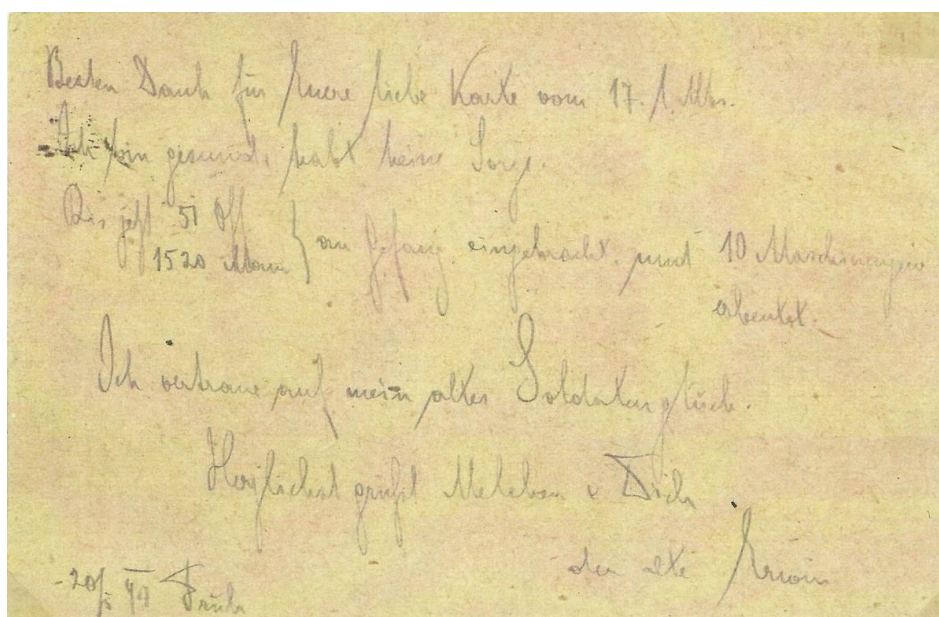 Besten Dank für Euere liebe Karte vom 17. l. Mts.
Ich bin gesund, habt keine Sorge.
Bis jetzt 51 Off
1520 Mann } an Gefang eingebracht und 10 Maschinengew
erbeutet.
Ich vertraue auf mein altes Soldatenglück.
Herzlichst grüßt & Dich
der alte Erwin
20/5 Früh